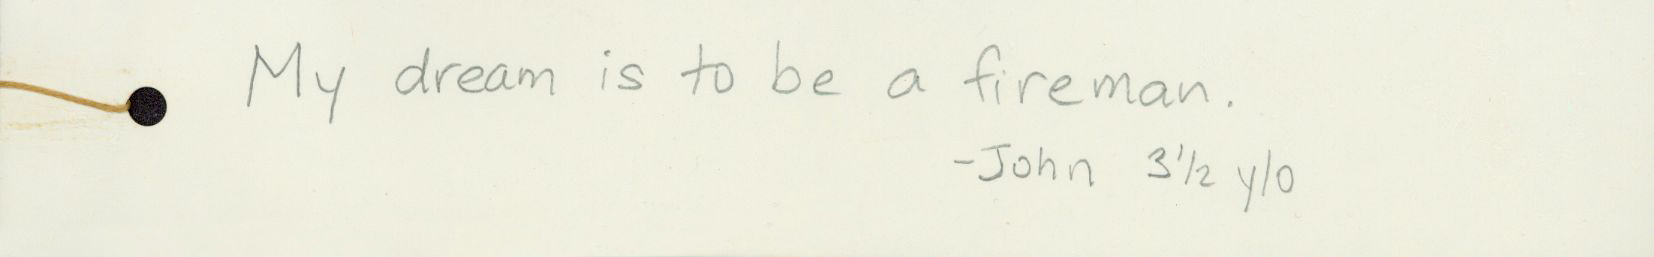 My dream is to be a fireman.
-John 3 1/2 y/o